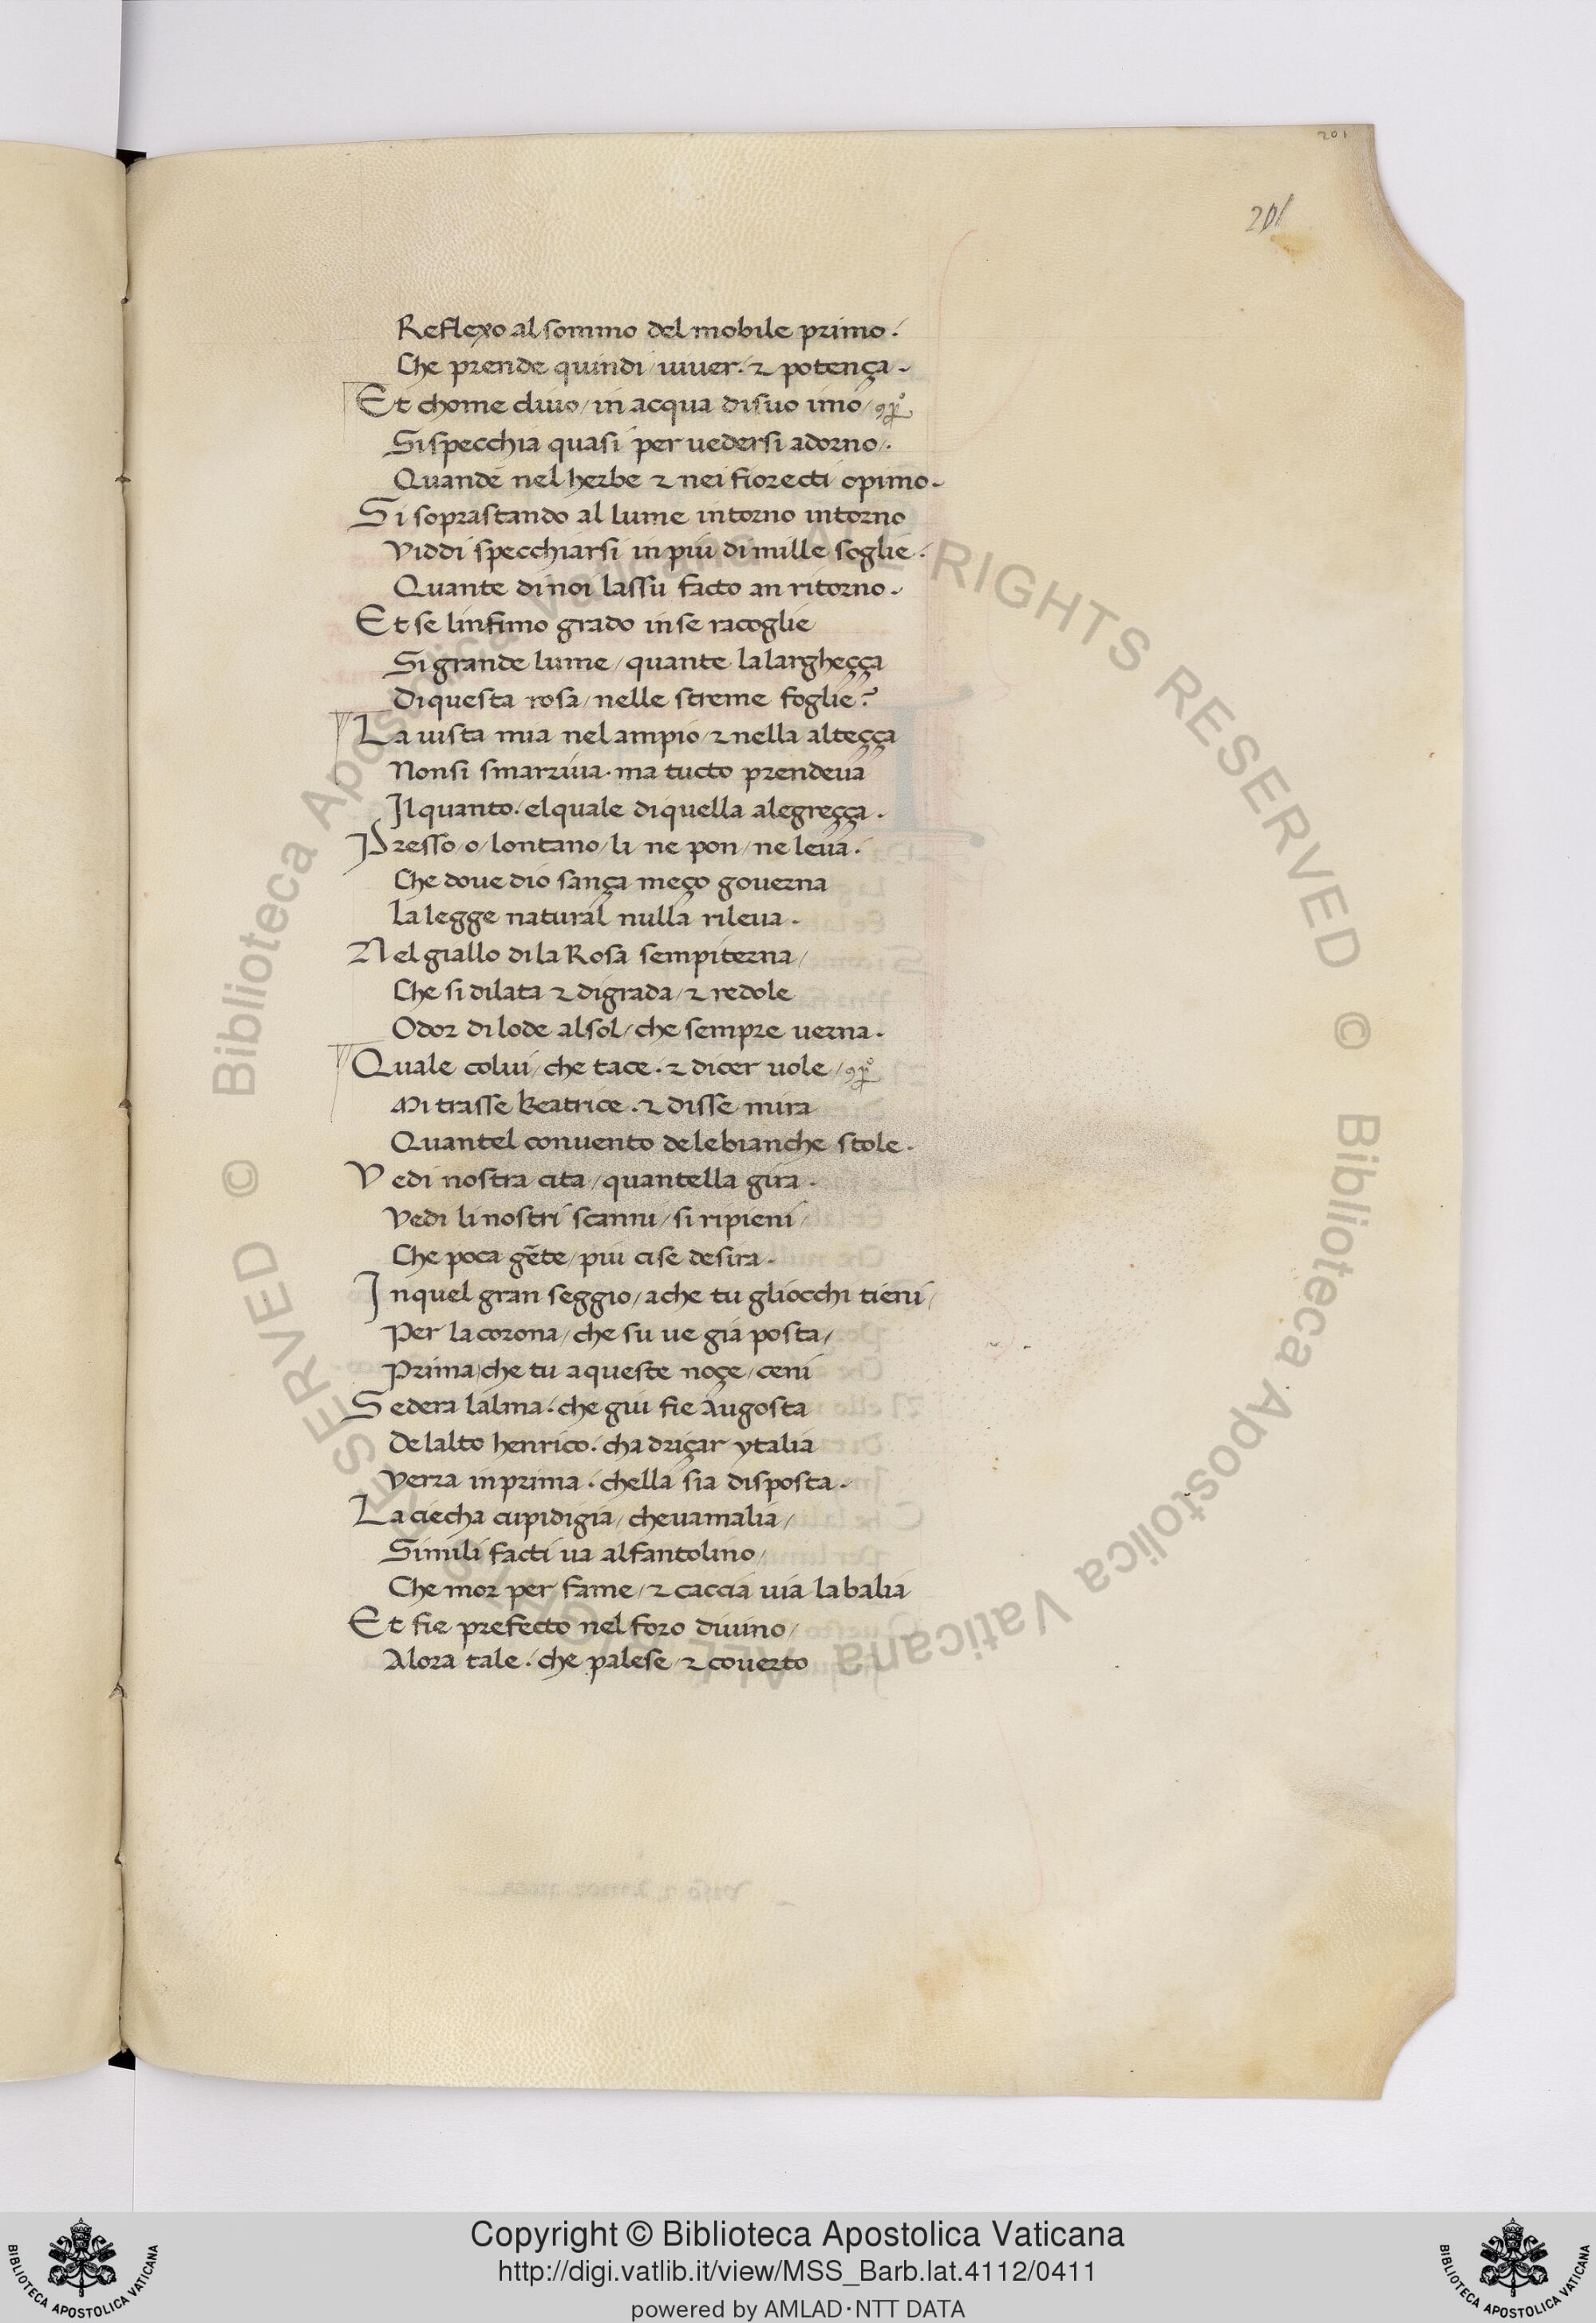 201
201
Reflexo al sommo del mobile primo.
Che prende quindi / viver. & potença.
Et chome clivo / in acqua di suo imo /
Si specchia quasi per vedersi adorno /.
Quande nel herbe & nei fiorecti opimo.
Si soprastando al lume intorno intorno
Viddi specchiarsi in piu di mille soglie.
Quante di noi lassu facto an ritorno.
Et se linfimo grado in se racoglie
Si grande lume / quante la largheçça
Di questa rosa / nelle streme foglie?
La vista mia nel ampio / & nella alteçça
Non si smarriva. ma tucto prendeva
Il quanto. el quale di quella alegreçça.
Presso / o / lontano / li ne pon / ne leva.
Che dove dio sança meço governa
La legge natural nulla rileva.
Nel giallo di la Rosa sempiterna /
Che si dilata & digrada / & redole
Odor di lode al sol / che sempre verna.
Quale colui / che tace. & dicer vole /
Mi trasse beatrice. & disse mira
Quantel convento de le bianche stole.
Vedi nostra cita / quantella gira.
Vedi li nostri scanni / si ripieni /
Che poca gēte / piu ci se desira.
In quel gran seggio / a che tu gliocchi tieni /
Per la corona / che su ve gia posta /
Prima / che tu a queste noçe / ceni
Sedera lalma. che giu fie augosta
De lalto henrico. cha driçar ytalia
Verra in prima. chella sia disposta.
La ciecha cupidigia / che vamalia /
Simili facti va al fantolino /
Che mor per fame / & caccia via la balia
Et fie prefecto nel foro divino /
Alora tale. che palese / & coverto
© Biblioteca Apostolica Vaticana ALL RIGHTS RESERVED © Biblioteca Apostolica Vaticana ALL RIGHTS RESERVED
Copyright © Biblioteca Apostolica Vaticana
http://digi.vatlib.it/view/MSS_Barb.lat.4112/0411
powered by AMLAD·NTT DATA
BIBLIOTECA APOSTOLICA VATICANA
BIBLIOTECA APOSTOLICA VATICANA